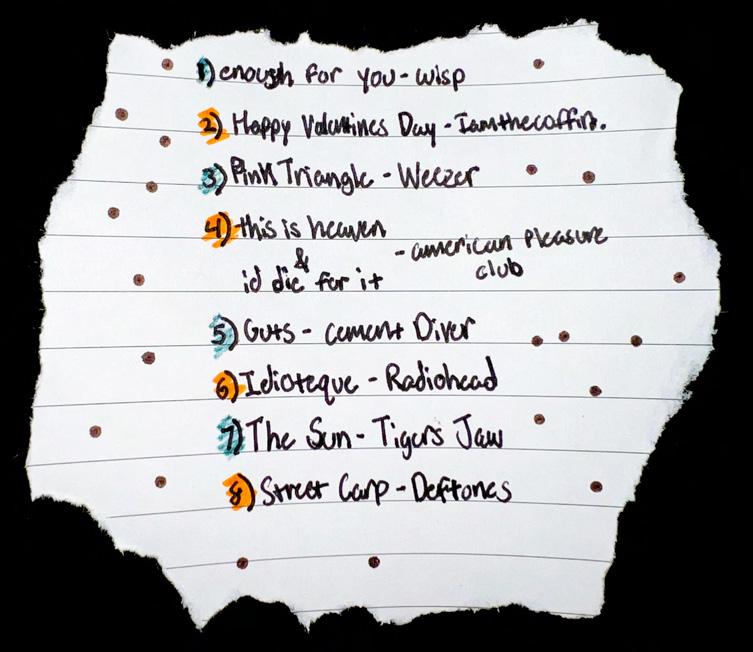 1) enough for you - wisp
2) Happy Valentines Day - Iamthecoffin.
3) Pink Triangle - Weezer
4) this is heaven
& - american Pleasure
id die for it club
5) Guts - cement Diver
6) Idioteque - Radiohead
7) The Sun - Tigers Jaw
8) Street Carp - Deftones